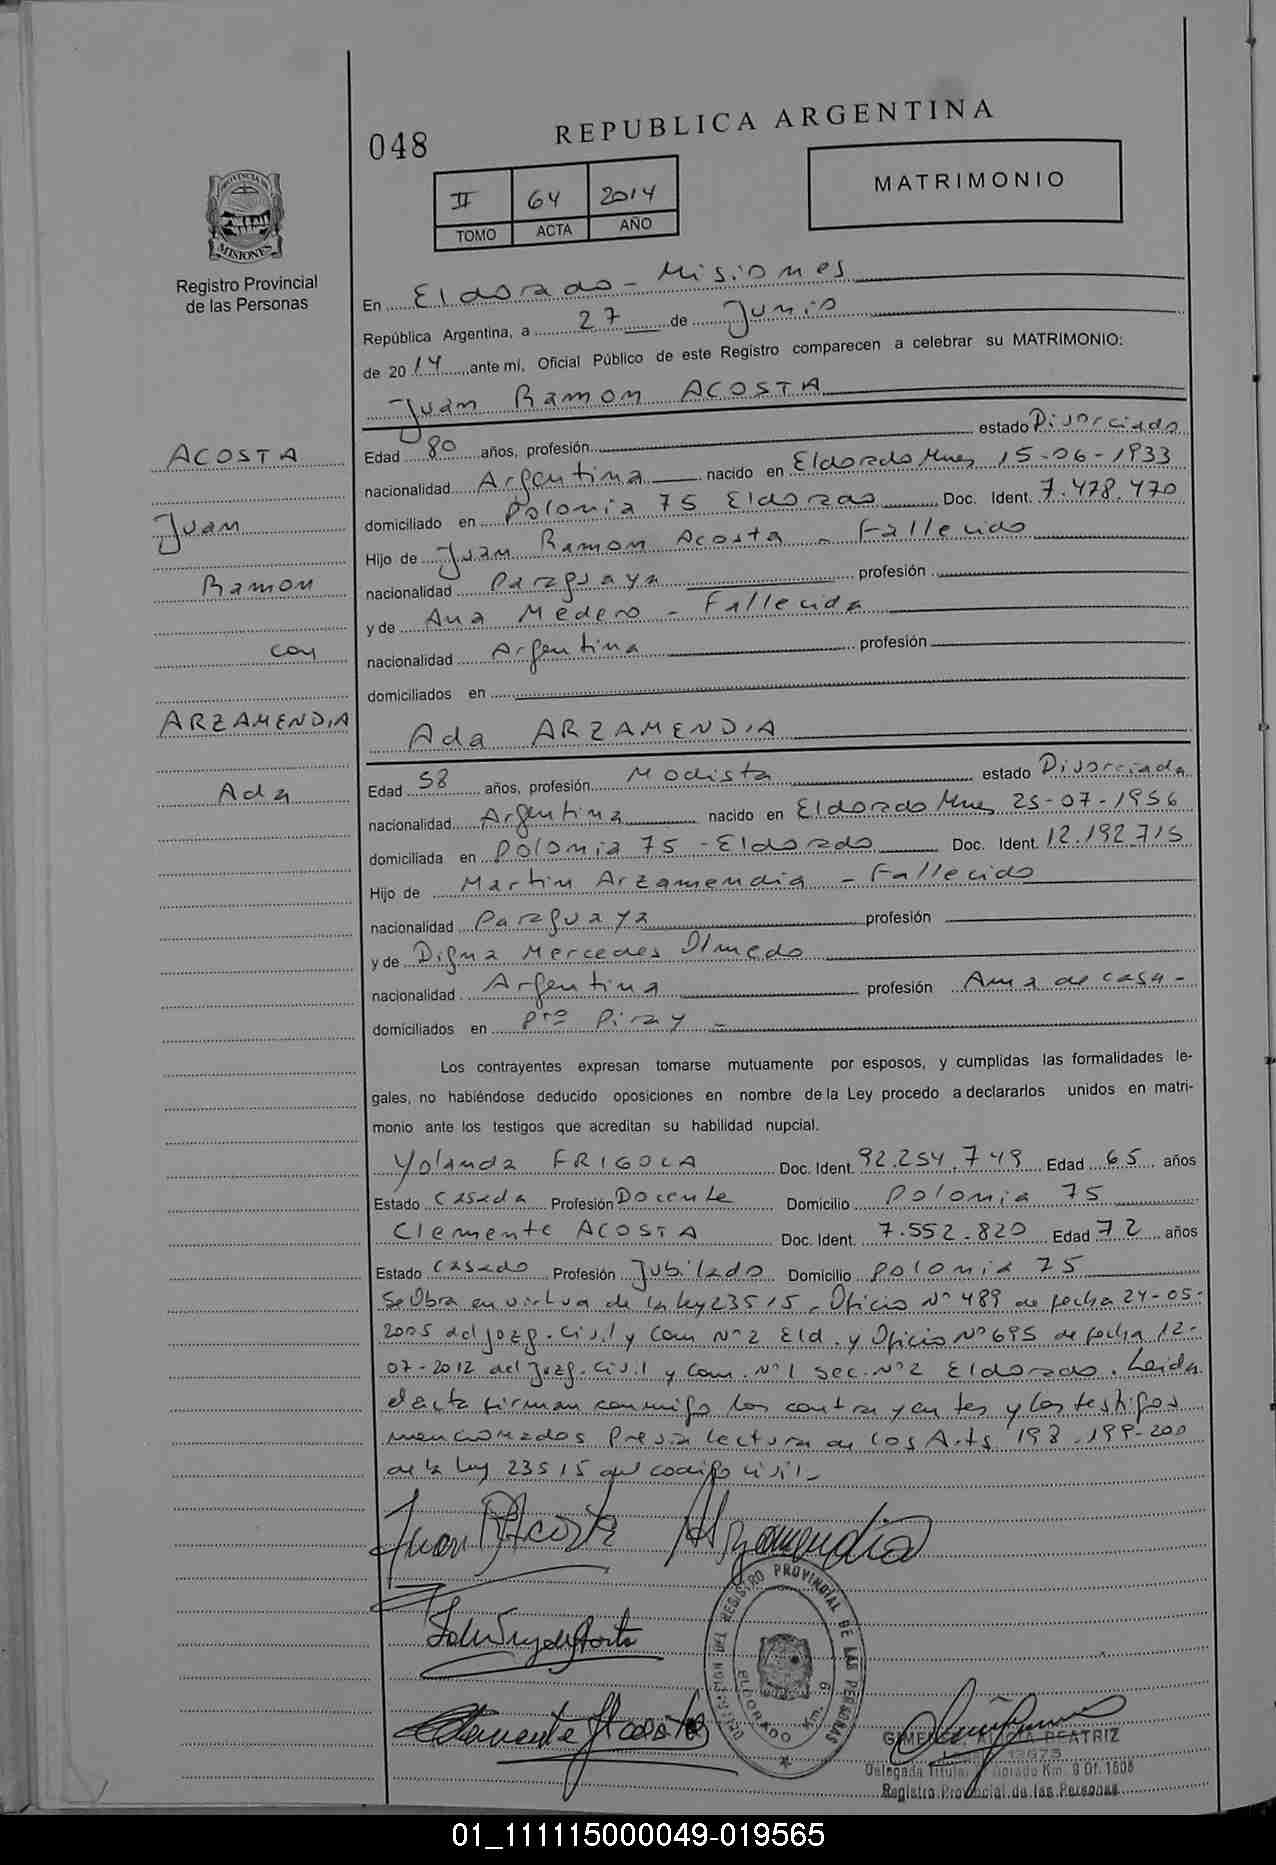 048
REPUBLICA ARGENTINA
II 64 2014
TOMO ACTA AÑO
MATRIMONIO
PROVINCIA DE
MISIONES
Registro Provincial
de las Personas
En Eldorado - Misiones
República Argentina, a 27 de Junio
de 2014 ante mí, Oficial Público de este Registro comparecen a celebrar su MATRIMONIO:
Juan Ramon ACOSTA
ACOSTA
Juan
Ramon
con
ARZAMENDIA
Ada
Edad 80 años, profesión estado Divorciado
nacionalidad Argentina nacido en Eldorado Mnes 15-06-1933
domiciliado en Polonia 75 Eldorado Doc. Ident. 7.478.470
Hijo de Juan Ramon Acosta - Fallecido
nacionalidad Paraguaya profesión
y de Ana Medero - Fallecida
nacionalidad Argentina profesión
domiciliados en
Ada ARZAMENDIA
Edad 58 años, profesión Modista estado Divorciada
nacionalidad Argentina nacido en Eldorado Mnes 25-07-1956
domiciliada en Polonia 75 - Eldorado Doc. Ident. 12.192.715
Hijo de Martin Arzamendia - Fallecido
nacionalidad Paraguaya profesión
y de Digna Mercedes Olmedo
nacionalidad Argentina profesión Ama de casa -
domiciliados en Pto Piray -
Los contrayentes expresan tomarse mutuamente por esposos, y cumplidas las formalidades le-
gales, no habiéndose deducido oposiciones en nombre de la Ley procedo a declararlos unidos en matri-
monio ante los testigos que acreditan su habilidad nupcial.
Yolanda FRIGOLA Doc. Ident. 92.254.749 Edad 65 años
Estado Casada Profesión Docente Domicilio Polonia 75
Clemente ACOSTA Doc. Ident. 7.552.820 Edad 72 años
Estado Casado Profesión Jubilado Domicilio Polonia 75
Se Obra en virtud de la ley 23515. Oficio Nº 489 de fecha 24-05-
2005 del juzg. Civil y Com Nº 2 Eld. y Oficio Nº 695 de fecha 12-
07-2012 del Juzg. Civil y Com. Nº 1 Sec. Nº 2 Eldorado. Leida
el acta firman conmigo los contrayentes y los testigos
mencionados Previa lectura de los Arts 198-199-200
de la ley 23515 del codigo civil -
Juan R Acosta Arzamendia
Clemente Acosta
REGISTRO PROVINCIAL DE LAS PERSONAS
ELDORADO Km. 9
GIMENEZ, ALICIA BEATRIZ
Delegada Titular Eldorado Km. 9 Of. 1506
Registro Provincial de las Personas
01_111115000049-019565